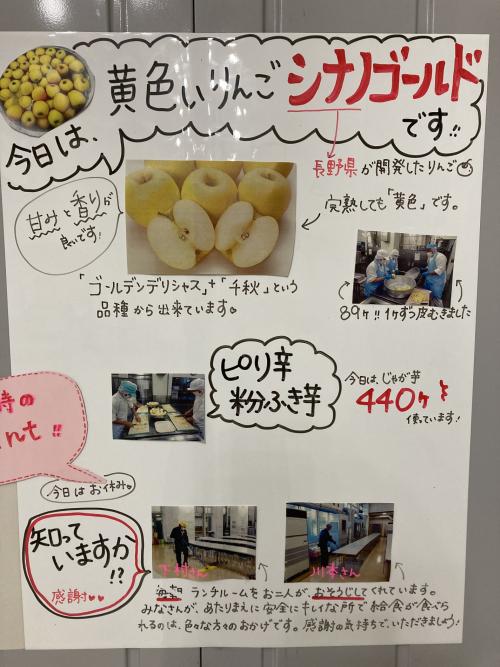 今日は、
黄色いりんごシナノゴールド
です!!
長野県が開発したりんご
完熟しても「黄色」です。
甘みと香りが
良いです!
「ゴールデンデリシャス」+「千秋」という
品種から出来ています。
89ヶ!!1ヶずつ皮むきました
ピリ辛
粉ふき芋
今日は、じゃが芋
440ヶを
使っています!
時の
nt!!
今日はお休み
知って
いますか
!?
感謝♥♥
下村さん
川本さん
毎日 ランチルームをお二人が、おそうじしてくれています。
みなさんが、あたりまえに安全にキレイな所で給食が食べら
れるのは、色々な方々のおかげです。感謝の気持ちで、いただきましょう!